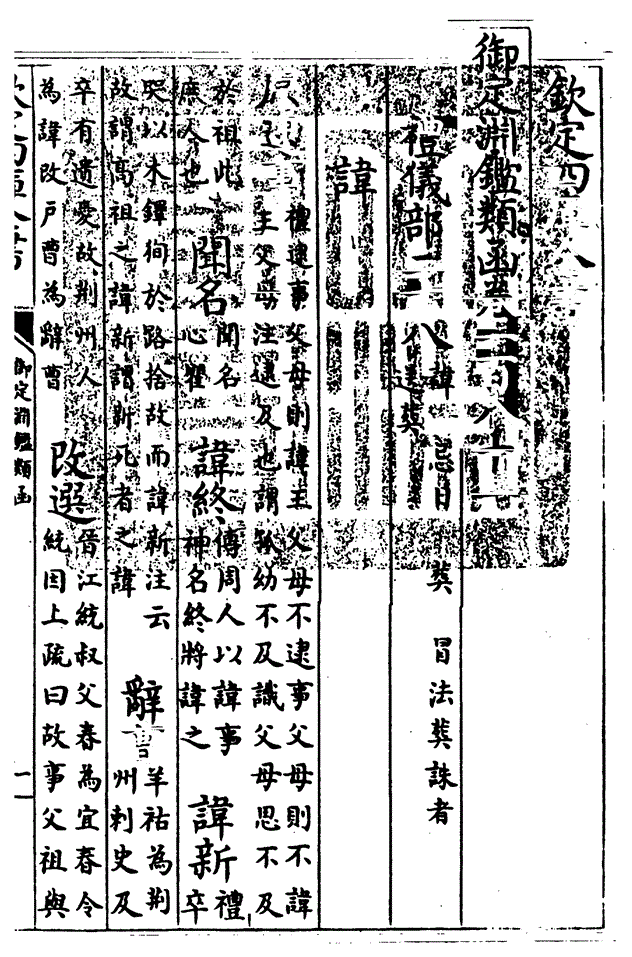 欽定四
御定淵鑑類函卷
禮儀部二八 諱 忌日 葬 冒法葬誅者
諱
禮逮事父母則諱王父母不逮事父母則不諱
王父母注逮及也謂孤幼不及識父母恩不及
於祖 聞名 聞名 諱終 傳周人以諱事 諱新 禮
庶人也 心瞿 神名終將諱之 卒
哭以木鐸徇於路捨故而諱新注云 羊祜為荆
故謂高祖之諱新謂新死者之諱 辭 州刺史及
卒有遺愛故荆州人 改選 晉江統叔父春為宜春令
為諱改戸曹為辭曹 統因上疏曰故事父祖與
御定淵鑑類函
一